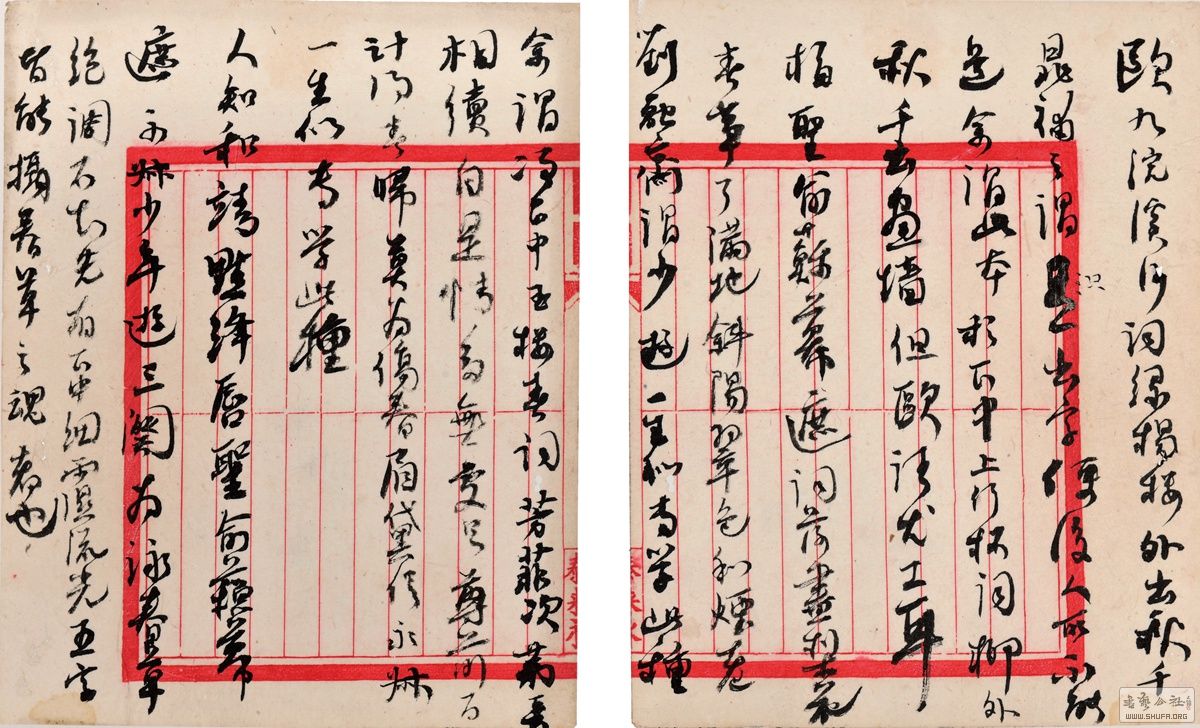 歐九浣溪沙詞綠楊樓外出秋千
晁補之謂只一出字便後人所不能
道余謂此本於正中上行杯詞柳外
秋千出畫牆但歐語尤工耳
梅聖俞蘇幕遮詞落盡梨花
春事了滿地斜陽翠色和煙老
劉融齋謂少游一生似專學此種
余謂馮正中玉樓春詞芳菲次第長
相續自是情多無處足尊前百
計得春歸莫為傷春眉黛促永叔
一生似專學此種
人知和靖點絳唇聖俞蘇幕
遮永叔少年遊三闋為詠春草
絕調不知先有正中細雨濕流光五字
皆能攝春草之魂者也
書法公社
WWW.SHUFA.ORG